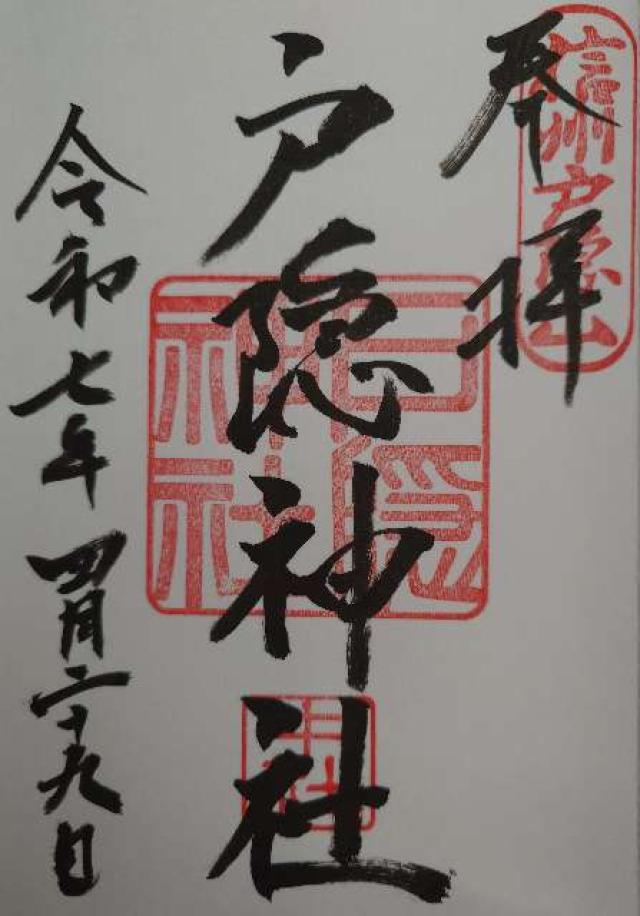 奉拝
信州戸隠山
戸隠神社
戸隠神社
中社
令和七年四月二十九日